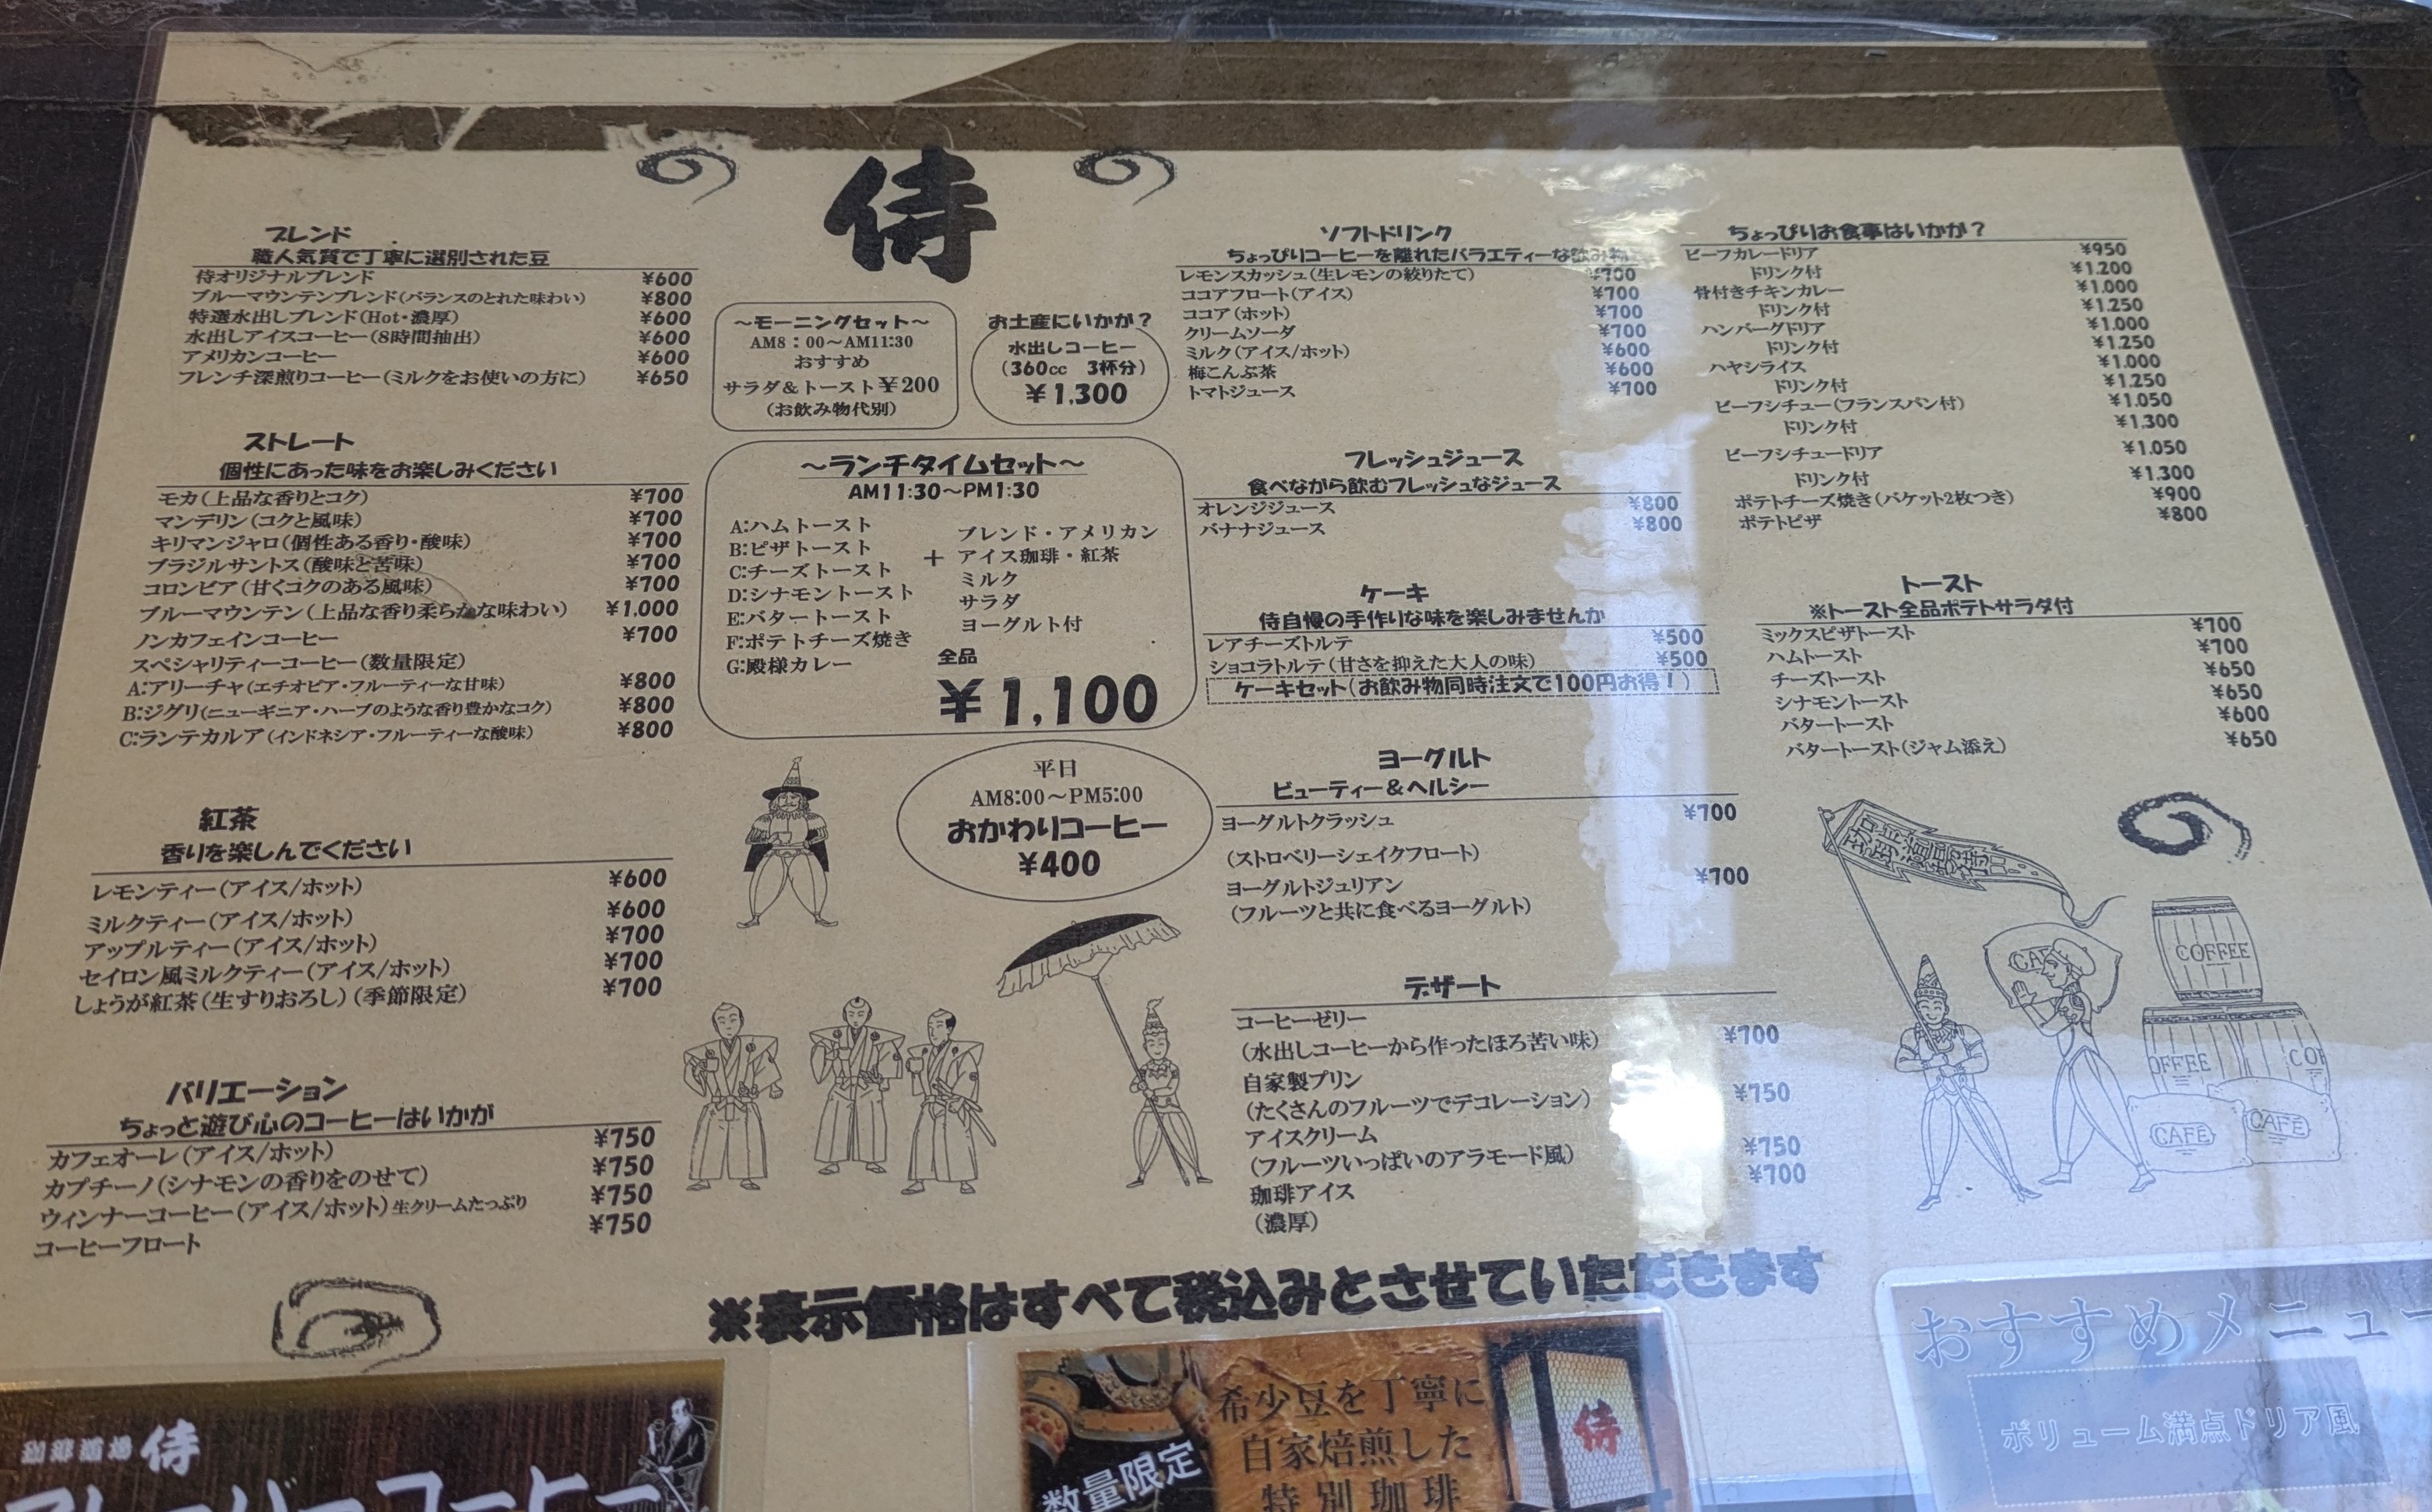 侍
ブレンド
職人気質で丁寧に選別された豆
侍オリジナルブレンド ¥600
ブルーマウンテンブレンド(バランスのとれた味わい) ¥800
特選水出しブレンド(Hot・濃厚) ¥600
水出しアイスコーヒー(8時間抽出) ¥600
アメリカンコーヒー ¥600
フレンチ深煎りコーヒー(ミルクをお使いの方に) ¥650
ストレート
個性にあった味をお楽しみください
モカ(上品な香りとコク) ¥700
マンデリン(コクと風味) ¥700
キリマンジャロ(個性ある香り・酸味) ¥700
ブラジルサントス(酸味と苦味) ¥700
コロンビア(甘くコクのある風味) ¥700
ブルーマウンテン(上品な香り柔らかな味わい) ¥1.000
ノンカフェインコーヒー ¥700
スペシャリティーコーヒー(数量限定)
A:アリーチャ(エチオピア・フルーティーな甘味) ¥800
B:ジグリ(ニューギニア・ハーブのような香り豊かなコク) ¥800
C:ランテカルア(インドネシア・フルーティーな酸味) ¥800
紅茶
香りを楽しんでください
レモンティー(アイス/ホット) ¥600
ミルクティー(アイス/ホット) ¥600
アップルティー(アイス/ホット) ¥700
セイロン風ミルクティー(アイス/ホット) ¥700
しょうが紅茶(生すりおろし)(季節限定) ¥700
バリエーション
ちょっと遊び心のコーヒーはいかが
カフェオーレ(アイス/ホット) ¥750
カプチーノ(シナモンの香りをのせて) ¥750
ウィンナーコーヒー(アイス/ホット)生クリームたっぷり ¥750
コーヒーフロート ¥750
～モーニングセット～
AM8:00～AM11:30
おすすめ
サラダ&トースト¥200
(お飲み物代別)
お土産にいかが?
水出しコーヒー
(360cc 3杯分)
¥1.300
～ランチタイムセット～
AM11:30～PM1:30
A:ハムトースト
B:ピザトースト
C:チーズトースト
D:シナモントースト
E:バタートースト
F:ポテトチーズ焼き
G:殿様カレー
+
ブレンド・アメリカン
アイス珈琲・紅茶
ミルク
サラダ
ヨーグルト付
全品
¥1,100
平日
AM8:00～PM5:00
おかわりコーヒー
¥400
ソフトドリンク
ちょっぴりコーヒーを離れたバラエティーな飲み物
レモンスカッシュ(生レモンの絞りたて) ¥700
ココアフロート(アイス) ¥700
ココア(ホット) ¥700
クリームソーダ ¥700
ミルク(アイス/ホット) ¥600
梅こんぶ茶 ¥600
トマトジュース ¥700
フレッシュジュース
食べながら飲むフレッシュなジュース
オレンジジュース ¥800
バナナジュース ¥800
ケーキ
侍自慢の手作りな味を楽しみませんか
レアチーズトルテ ¥500
ショコラトルテ(甘さを抑えた大人の味) ¥500
ケーキセット(お飲み物同時注文で100円お得!)
ヨーグルト
ビューティー&ヘルシー
ヨーグルトクラッシュ ¥700
(ストロベリーシェイクフロート)
ヨーグルトジュリアン ¥700
(フルーツと共に食べるヨーグルト)
デザート
コーヒーゼリー
(水出しコーヒーから作ったほろ苦い味) ¥700
自家製プリン
(たくさんのフルーツでデコレーション) ¥750
アイスクリーム
(フルーツいっぱいのアラモード風) ¥750
珈琲アイス ¥700
(濃厚)
ちょっぴりお食事はいかが?
ビーフカレードリア ¥950
ドリンク付 ¥1.200
骨付きチキンカレー ¥1.000
ドリンク付 ¥1.250
ハンバーグドリア ¥1.000
ドリンク付 ¥1.250
ハヤシライス ¥1.000
ドリンク付 ¥1.250
ビーフシチュー(フランスパン付) ¥1.050
ドリンク付 ¥1,300
ビーフシチュードリア ¥1.050
ドリンク付 ¥1.300
ポテトチーズ焼き(バケット2枚つき) ¥900
ポテトピザ ¥800
トースト
※トースト全品ポテトサラダ付
ミックスピザトースト ¥700
ハムトースト ¥700
チーズトースト ¥650
シナモントースト ¥650
バタートースト ¥600
バタートースト(ジャム添え) ¥650
COFFEE
CAFE
CAFE
※表示価格はすべて税込みとさせていただきます
珈琲道場 侍
数量限定
希少豆を丁寧に
自家焙煎した
特別珈琲
侍
おすすめメニュー
ボリューム満点ドリア風